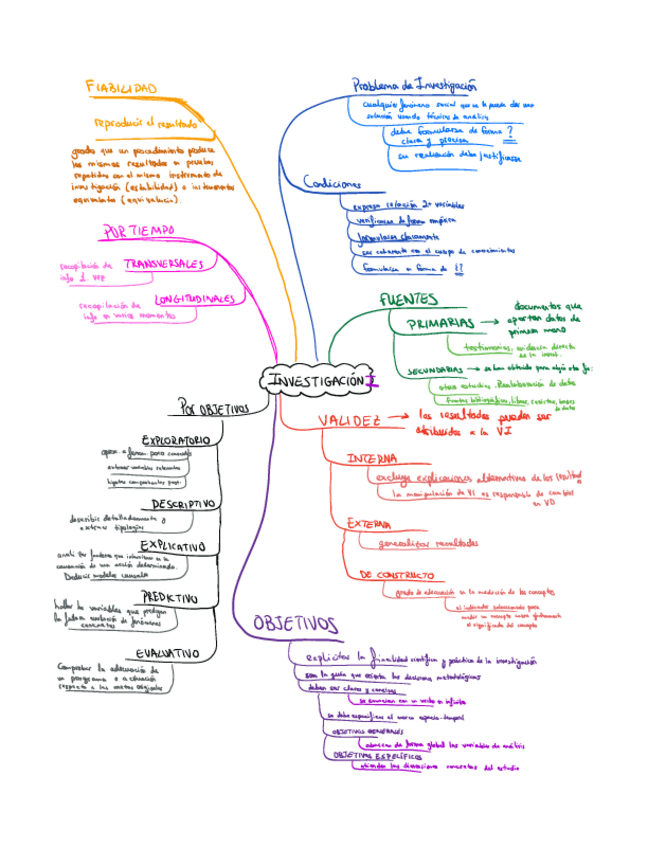 FIABILIDAD
reproducir el resultado
grado que un procedimiento produce
los mismos resultados en pruebas
repetidas con el mismo instrumento de
investigación (estabilidad) o instrumentos
equivalentes (equivalencia).
POR TIEMPO
recopilación de
info 1 vez
TRANSVERSALES
LONGITUDINALES
recopilación de
info en varios momentos
Problema de Investigación
cualquier fenómeno social que se le pueda dar una
solución usando técnicas de análisis
debe formularse de forma ?
clara y precisa
su realización debe justificarse
Condiciones
expresa relación 2+ variables
verificarse de forma empírica
formularse claramente
ser coherente con el cuerpo de conocimientos
formularse en forma de ¿?
FUENTES
PRIMARIAS →
documentos que
aportan datos de
primera mano
testimonios, evidencia directa
de la invest.
SECUNDARIAS →
otros estudios. Reelaboración de datos
INVESTIGACIÓN I
VALIDEZ → los resultados pueden ser
atribuidos a la VI
INTERNA
excluye explicaciones alternativas de los resultados
la manipulación de VI es responsable de cambios
en VD
EXTERNA
generalizar resultados
DE CONSTRUCTO
grado de adecuación en la medición de los conceptos
el indicador seleccionado para
medir un concepto
el significado del concepto
POR OBJETIVOS
EXPLORATORIO
extraer variables relevantes
DESCRIPTIVO
describir detalladamente y
extraer tipologías
EXPLICATIVO
analizar factores que
de una acción determinada.
PREDICTIVO
hallar las variables que predigan
la futura evolución de fenómenos
concretos
EVALUATIVO
Comprobar la adecuación de
un programa o actuación
respecto a las metas
OBJETIVOS
explicitar la finalidad científica y práctica de la investigación
son la guía que orienta las decisiones metodológicas
deben ser claros y concisos
se enuncian con un verbo en infinitivo
se debe especificar el marco espacio-temporal
OBJETIVOS GENERALES
abarcan de forma global las variables de análisis
OBJETIVOS ESPECÍFICOS
atienden las dimensiones concretas del estudio